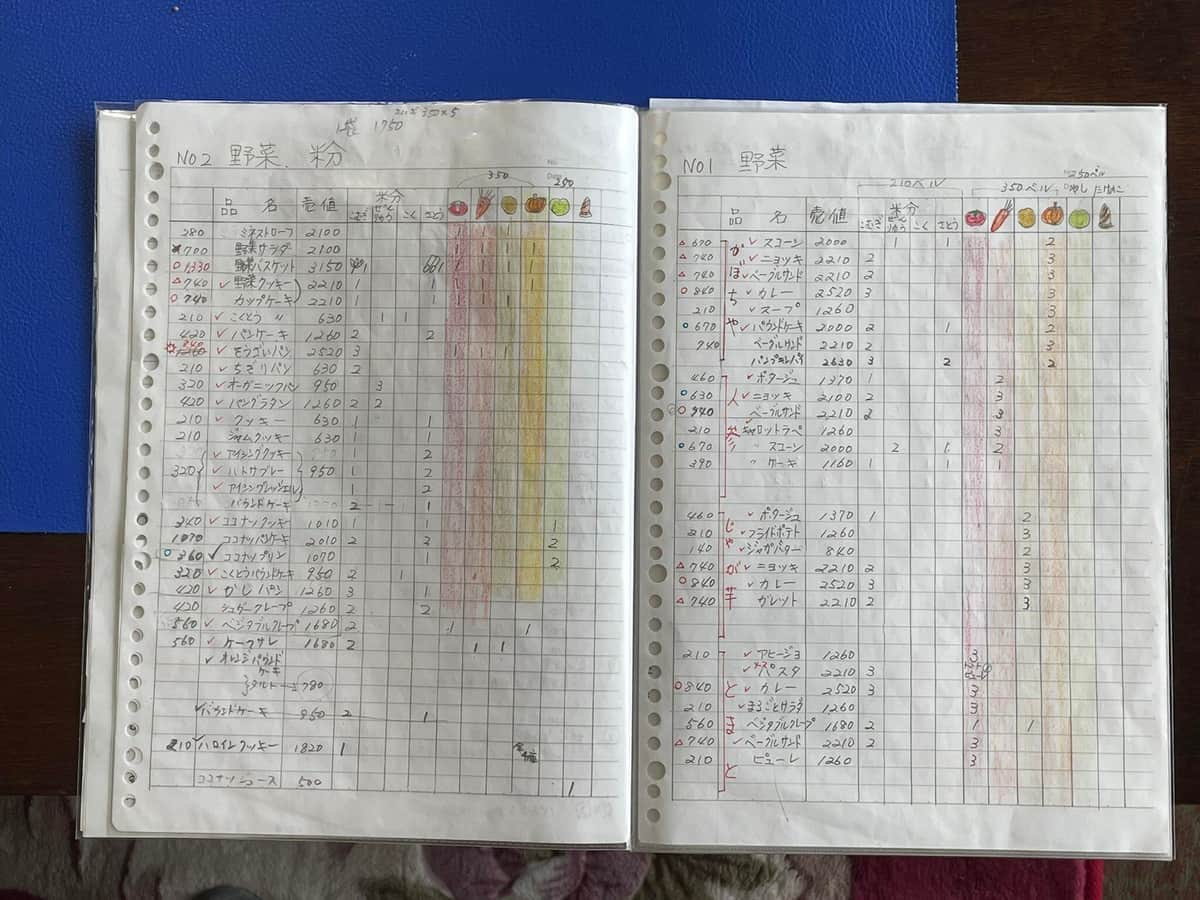 1袋 1750
NO2 野菜、粉
350
250
品名 売値 こむぎ 米分 こく さとう
280 ミネストローフ 2100 1 1 1
700 野菜サラダ 2100 1 1 1 1
1330 野菜バスケット 3150 1 1 1 1 1
△740 ✓野菜クッキー 2210 1 1 1 1 1
○740 カップケーキ 2210 1 1 1 1 1
210 ✓こくとう 〃 630 1 1
420 ✓パンケーキ 1260 2 2
840 ✓ぞうすいパン 2520 3 1 1 1
210 ✓ちぎりパン 630 2
320 ✓オーガニックパン 950 3
420 ✓パングラタン 1260 2 2
210 ✓クッキー 630 1 1
210 ジャムクッキー 630 1 1
✓アイシングクッキー 1 2
320 ✓ハトサブレー 950 1 2
✓アイシングプレッツェル 1 2
パウンドケーキ 2 1
340 ✓ココナツクッキー 1010 1 1 1
1070 ココナツパンケーキ 2010 2 2 2
360 ✓ココナツプリン 1070 1 2
320 ✓こくとうパウンドケーキ 950 2 1
420 ✓かしパン 1260 3 1
420 シュガークレープ 1260 2 2
560 ✓ベジタブルクレープ 1680 2 1 1
560 ✓ケークサレ 1680 2 1 1
✓オレンジパウンドケーキ
タルト 780
✓パウンドケーキ 950 2 1
210 ✓ハロインクッキー 1820 1
ココナツジュース 500 1
NO1 野菜
210ベル 350ベル 250ベル
品名 売値 こむぎ 米分 こく さとう
かぼちゃ
△670 ✓スコーン 2000 1 1 2
△740 ✓ニョッキ 2210 2 3
△740 ✓ベーグルサンド 2210 2 3
○840 ✓カレー 2520 3 3
210 ✓スープ 1260 3
○670 ✓パウンドケーキ 2000 2 1 2
740 ベーグルサンド 2210 2 3
パンプキンパイ 2630 3 2 2
460 ✓ポタージュ 1370 1 2
○630 ✓ニョッキ 2100 2 3
○740 ベーグルサンド 2210 2 3
210 キャロットラペ 1260 3
○670 〃 スコーン 2000 2 1 2
390 〃 ケーキ 1160 1 1 1
じゃが芋
460 ✓ポタージュ 1370 1 2
210 ✓フライドポテト 1260 3
140 ✓ジャガバター 840 2
△740 ✓ニョッキ 2210 2 3
○840 ✓カレー 2520 3 3
△740 ガレット 2210 2 3
とまと
210 ✓アヒージョ 1260 3
✓パスタ 2210 3
○840 ✓カレー 2520 3 3
210 ✓まるごとサラダ 1260 3
560 ベジタブルクレープ 1680 2 1 1
△740 ✓ベーグルサンド 2210 2 3
210 ピューレ 1260 3